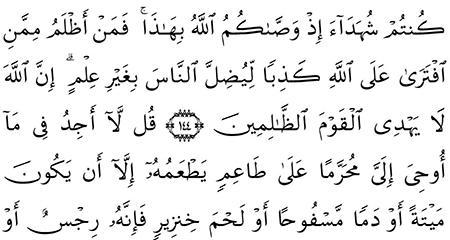 كُنتُمْ شُهَدَآءَ إِذْ وَصَّىٰكُمُ ٱللَّهُ بِهَٰذَا ۚ فَمَنْ أَظْلَمُ مِمَّنِ
ٱفْتَرَىٰ عَلَى ٱللَّهِ كَذِبًا لِّيُضِلَّ ٱلنَّاسَ بِغَيْرِ عِلْمٍ ۗ إِنَّ ٱللَّهَ
لَا يَهْدِى ٱلْقَوْمَ ٱلظَّٰلِمِينَ ﴿١٤٤﴾ قُل لَّآ أَجِدُ فِى مَآ
أُوحِىَ إِلَىَّ مُحَرَّمًا عَلَىٰ طَاعِمٍ يَطْعَمُهُۥٓ إِلَّآ أَن يَكُونَ
مَيْتَةً أَوْ دَمًا مَّسْفُوحًا أَوْ لَحْمَ خِنزِيرٍ فَإِنَّهُۥ رِجْسٌ أَوْ